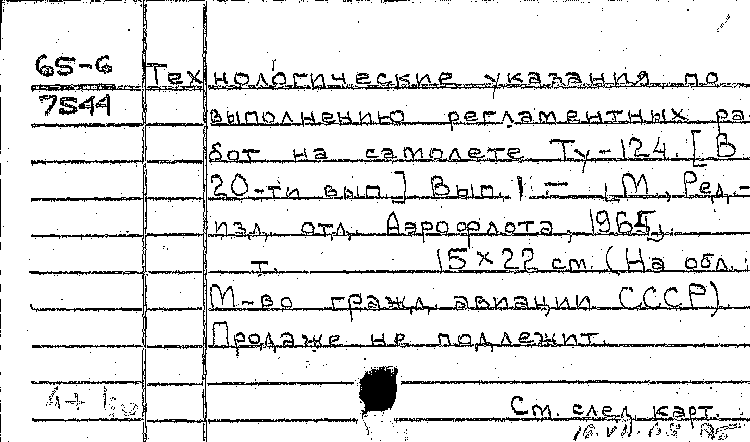 65-6
7544
Технологические указания по
выполнению регламентных ра-
бот на самолете Ту-124. [В
20-ти вып.] Вып. 1. — [М., Ред.-
изд. отд. Аэрофлота, 1965].
т. 15×22 см. (На обл.:
М-во гражд. авиации СССР).
Продаже не подлежит.
См. след. карт.